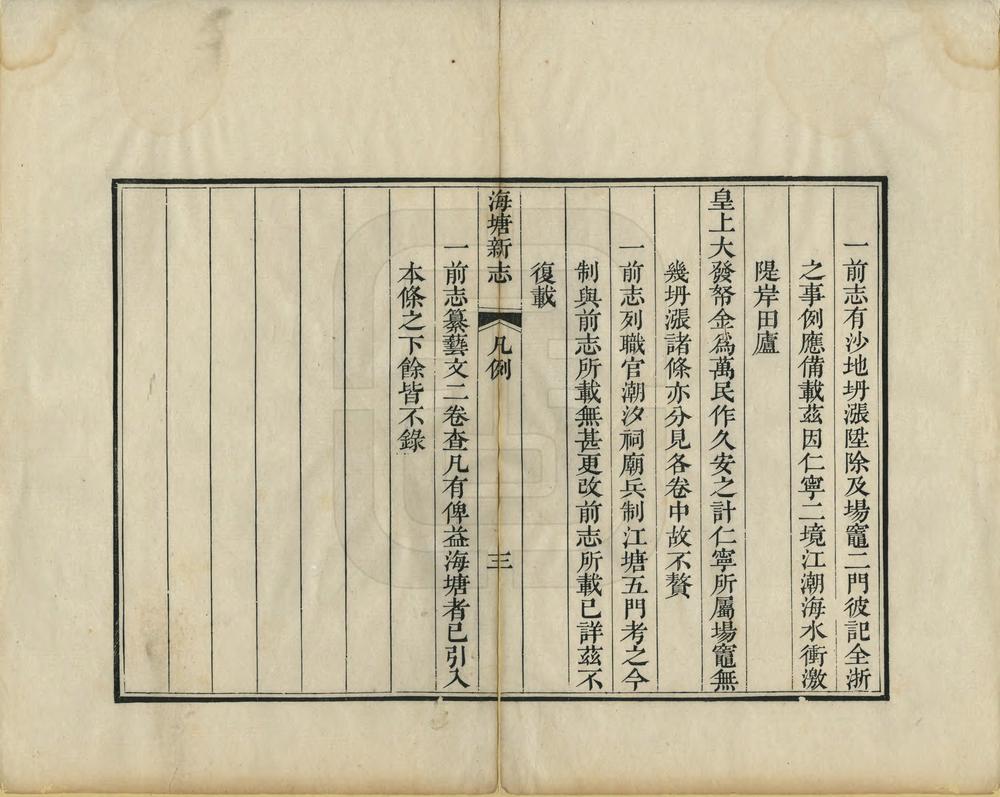 一前志有沙地坍漲陞除及場竈二門彼記全浙
之事例應備載茲因仁寧二境江潮海水衝激
隄岸田廬
皇上大發帑金爲萬民作久安之計仁寧所屬場竈無
幾坍漲諸條亦分見各卷中故不贅
一前志列職官潮汐祠廟兵制江塘五門考之今
制與前志所載無甚更改前志所載已詳茲不
復載
海塘新志 凡例 三
一前志纂藝文二卷查凡有俾益海塘者已引入
本條之下餘皆不錄